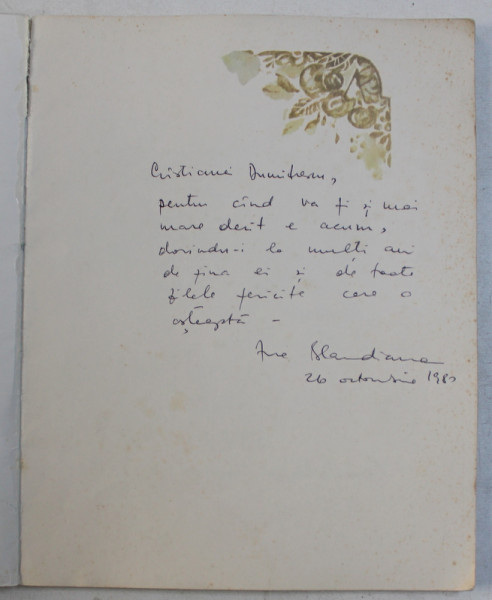 Cristianei Dumitrescu,
pentru cînd va fi și mai
mare decît e acum,
dorindu-i la mulți ani
de ziua ei și de toate
zilele fericite care o
așteaptă –
Ana Blandiana
26 octombrie 1980